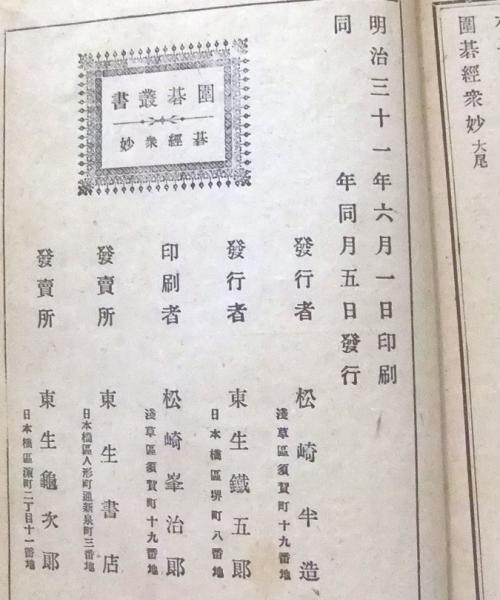 圍碁經衆妙 大尾
明治三十一年六月一日印刷
同年同月五日發行
圍碁叢書
碁經衆妙
發行者 松崎半造
淺草區須賀町十九番地
發行者 東生鐵五郎
日本橋區堺町八番地
印刷者 松崎峯治郎
淺草區須賀町十九番地
發賣所 東生書店
日本橋區人形町通新泉町三番地
發賣所 東生龜次郎
日本橋區濱町二丁目十一番地